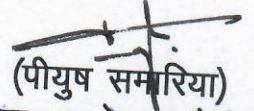 (पीयुष समारिया)